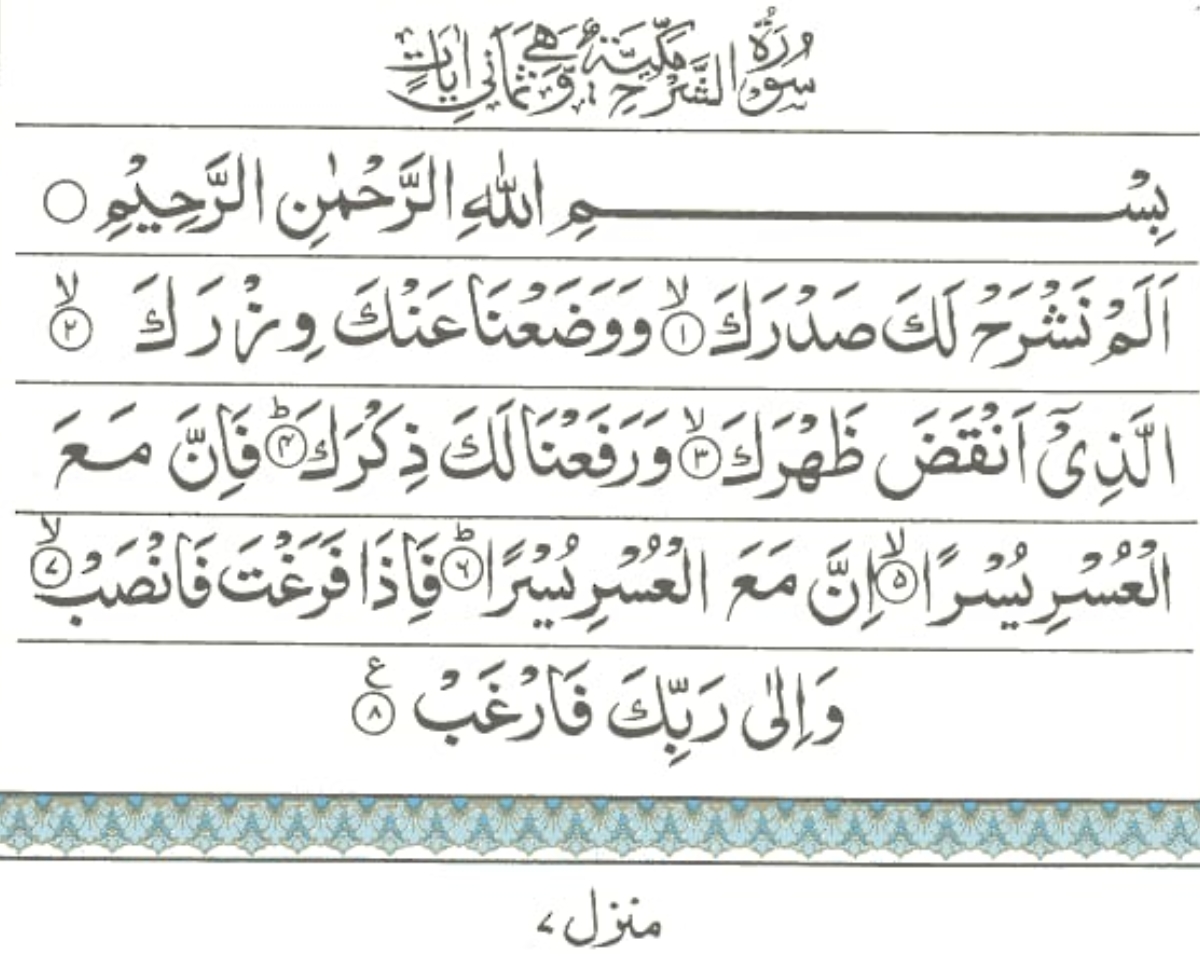 سُوْرَةُ الشَّرْحِ مَكِّيَّةٌ وَّهِيَ ثَمَانِيْ اٰيَاتٍ
بِسْمِ اللهِ الرَّحْمٰنِ الرَّحِيْمِ
اَلَمْ نَشْرَحْ لَكَ صَدْرَكَ ۙ۱ وَوَضَعْنَا عَنْكَ وِزْرَكَ ۙ۲
الَّذِيْٓ اَنْقَضَ ظَهْرَكَ ۙ۳ وَرَفَعْنَا لَكَ ذِكْرَكَ ؕ۴ فَاِنَّ مَعَ
الْعُسْرِ يُسْرًا ۙ۵ اِنَّ مَعَ الْعُسْرِ يُسْرًا ؕ۶ فَاِذَا فَرَغْتَ فَانْصَبْ ۙ۷
وَاِلٰى رَبِّكَ فَارْغَبْ ۸ ع
منزل ۷